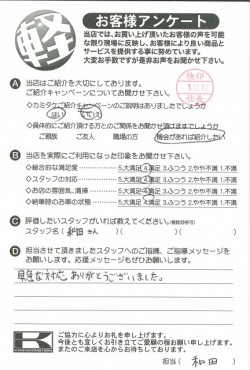 軽
お客様アンケート
当店では、お買い上げ頂いたお客様の声を可能
な限り現場に反映し、お客様により良い商品と
サービスを提供する事に努めています。
大変お手数ですが是非お声をお聞かせ下さい。
A 当店はご紹介を大切にしております。
ご紹介キャンペーンについてお聞かせ下さい。
はい いいえ
ご親族 ご友人 職場の方 機会があれば紹介したい
B 当店を実際にご利用になった印象をお聞かせ下さい。
◇総合的な満足度 5.大満足 4.満足 3.ふつう 2.やや不満 1.不満
◇スタッフの対応 5.大満足 4.満足 3.ふつう 2.やや不満 1.不満
◇お店の雰囲気、清掃 5.大満足 4.満足 3.ふつう 2.やや不満 1.不満
◇納車時のお車の状態 5.大満足 4.満足 3.ふつう 2.やや不満 1.不満
C 評価したいスタッフがいれば教えてください。
スタッフ名( 和田さん )
D 担当させて頂きましたスタッフへのご指摘、ご指導メッセージを
お願いします。応援メッセージもぜひお願いします。
対応ありがとうございました。
K
ご協力に心よりお礼を申し上げます。
今後とも宜しくお引き立てご愛顧の程お願い申し上げます。
またのご来店を心からお待ちしております。
担当( 和田 )